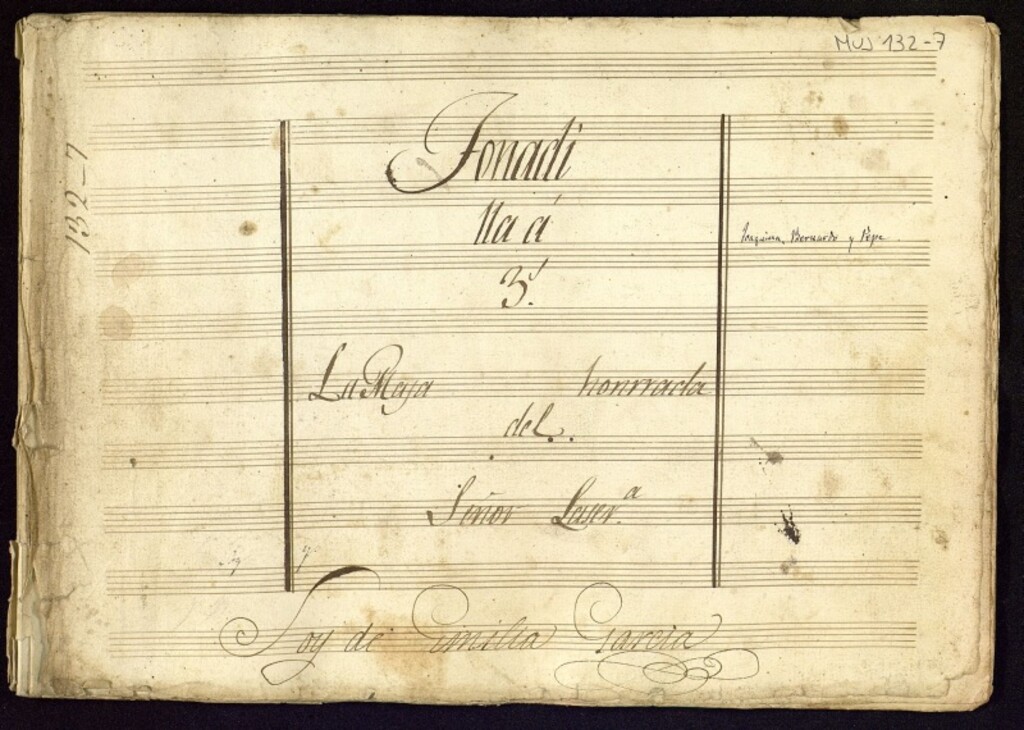 MUS 132-7
132-7
Tonadi
lla á
3.
Joaquina, Bernardo y Pepe
La Maja honrrada
del.
Señor Laser.ª
Soy de Emilia Garcia